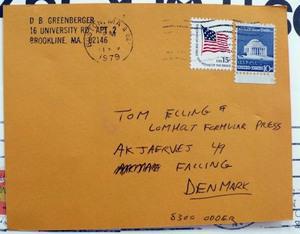 D B GREENBERGER
16 UNIVERSITY RD. APT. 2
BROOKLINE, MA. 02146
MA
1979
15c
10c
TOM ELLING &
FORMULAR PRESS
AKJAERVEJ
FALLING
DENMARK
8300 ODDER